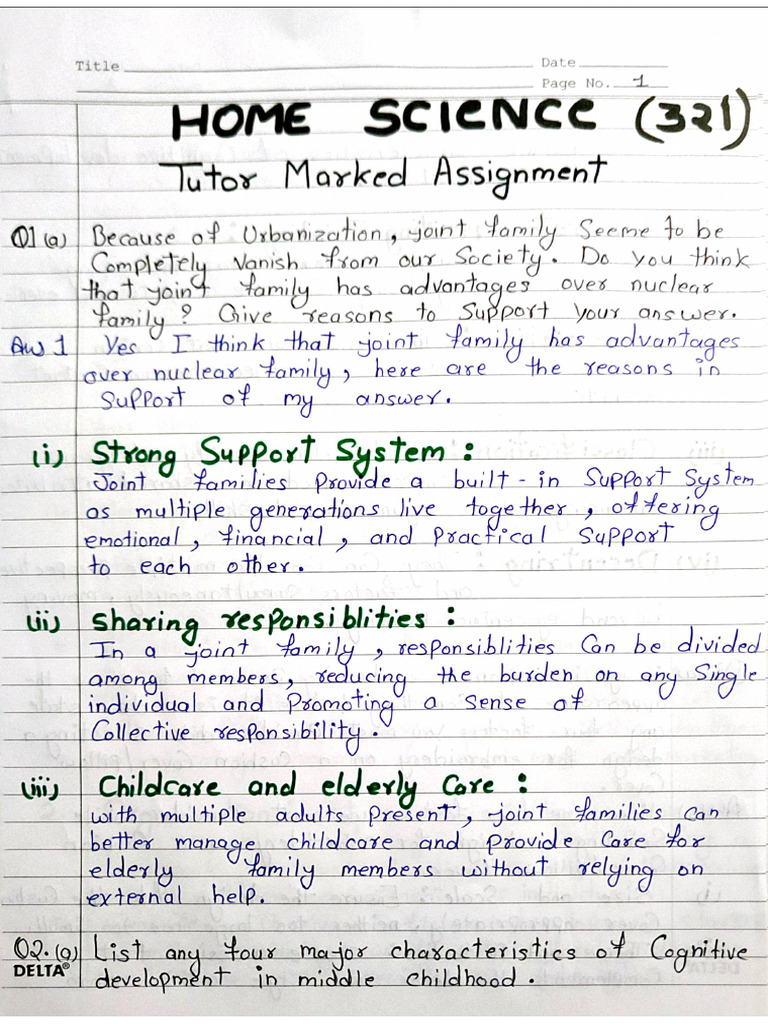 Title
Date
Page No. 1
HOME SCIENCE (321)
Tutor Marked Assignment
Q1 (a) Because of Urbanization, joint family Seeme to be
Completely Vanish from our Society. Do you think
that joint family has advantages over nuclear
family? Give reasons to Support your answer.
Ans 1 Yes I think that joint family has advantages
over nuclear family, here are the reasons in
Support of my answer.
(i) Strong Support System :
Joint families Provide a built-in Support System
as multiple generations live together, offering
emotional, financial, and Practical Support
to each other.
(ii) Sharing responsiblities :
In a joint family, responsiblities Can be divided
among members, reducing the burden on any Single
individual and Promoting a sense of
Collective responsibility.
(iii) Childcare and elderly Care :
with multiple adults Present, joint families can
better manage childcare and Provide Care for
elderly family members without relying on
external help.
Q2. (a) List any four major characteristics of Cognitive
DELTA® development in middle childhood.